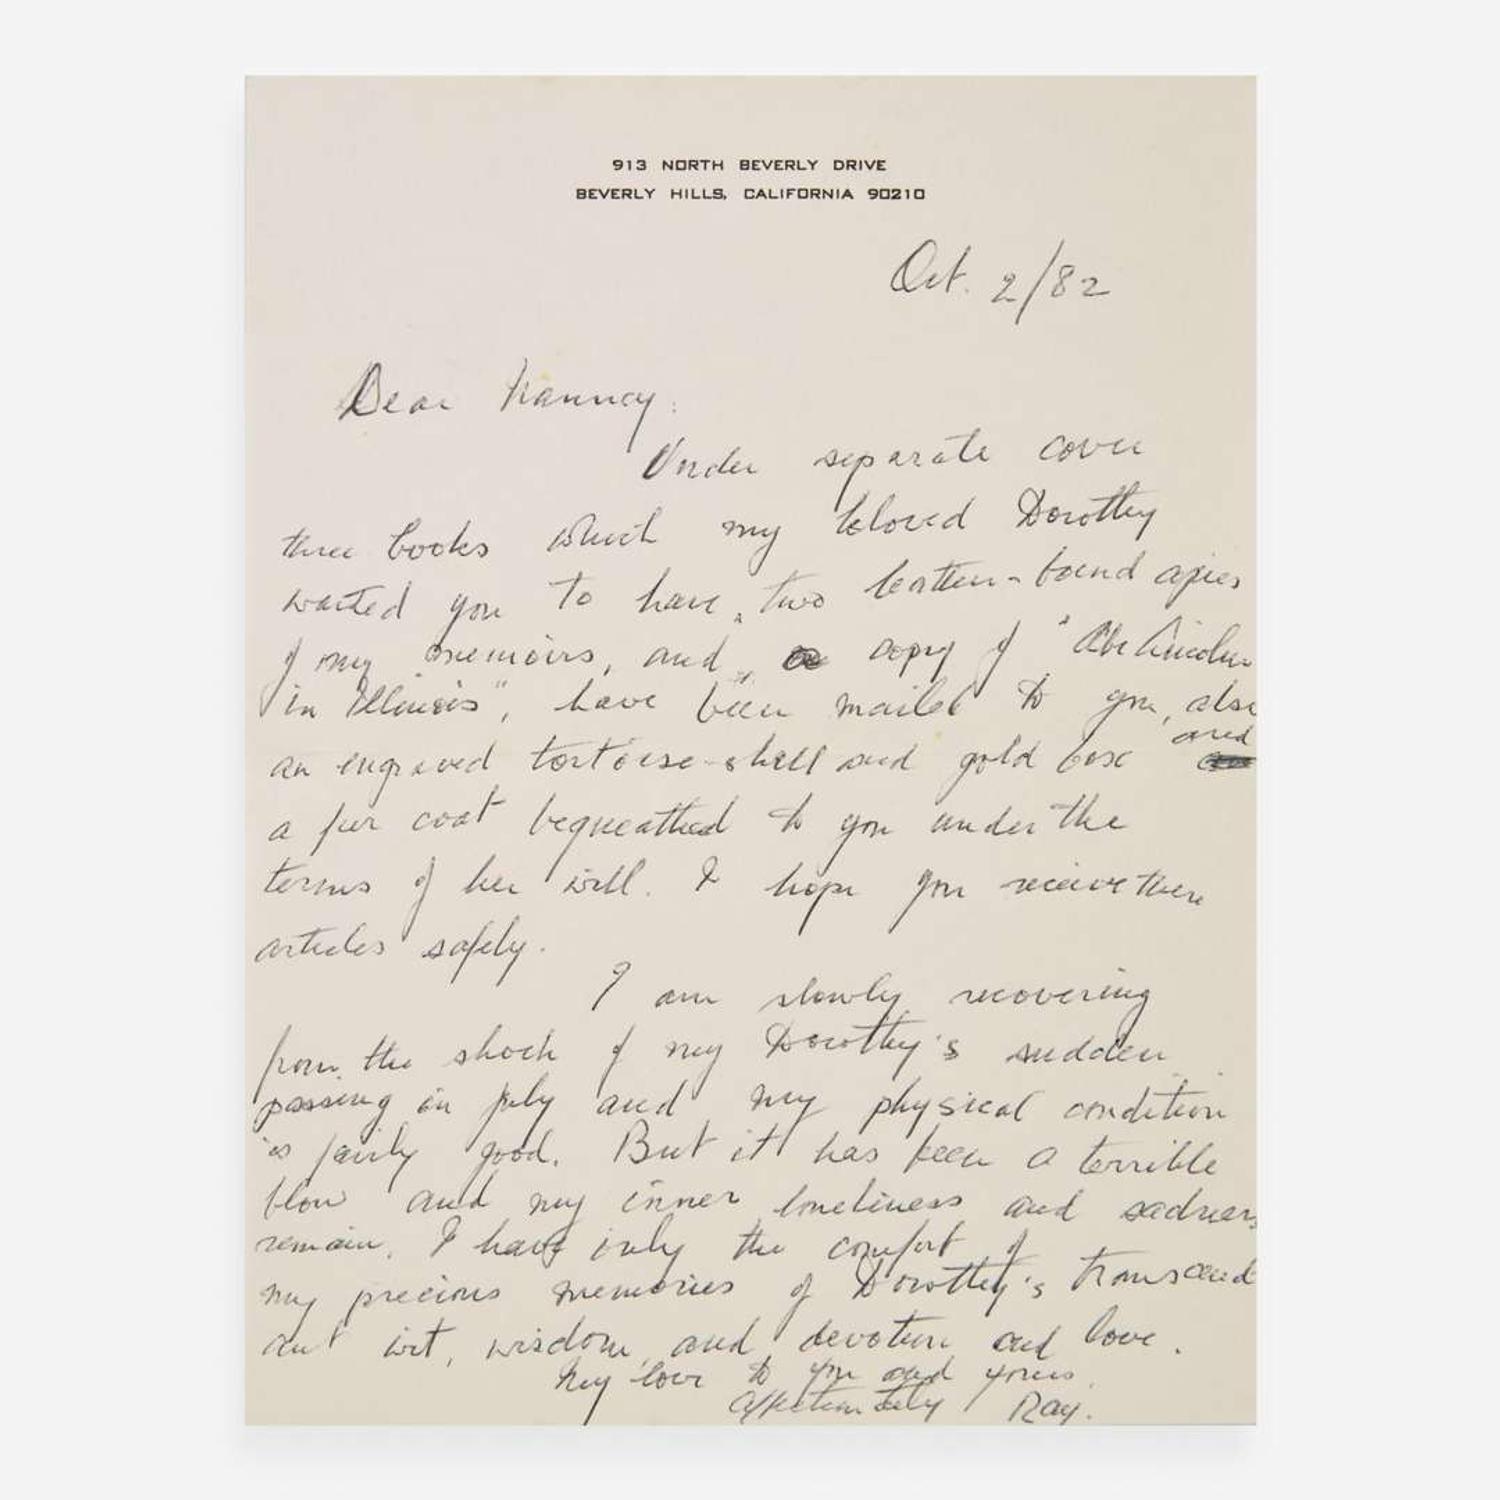 913 NORTH BEVERLY DRIVE
BEVERLY HILLS, CALIFORNIA 90210
Oct. 2/82
Dear Nanncy:
Under separate cover
three books which my beloved Dorothy
wanted you to have, two leather-bound copies
of my memoirs, and copy of "Abe Lincoln
in Illinois", have been mailed to you, also
an engraved tortoise-shell and gold box and
a fur coat bequeathed to you under the
terms of her will. I hope you receive these
articles safely.
I am slowly recovering
from the shock of my Dorothy's sudden
passing in July and my physical condition
is fairly good. But it has been a terrible
blow and my inner loneliness and sadness
remain. I have only the comfort of
my precious memories of Dorothy's transcend
ant wit, wisdom, and devotion and love.
My love to you and yours.
Affectionately Ray.